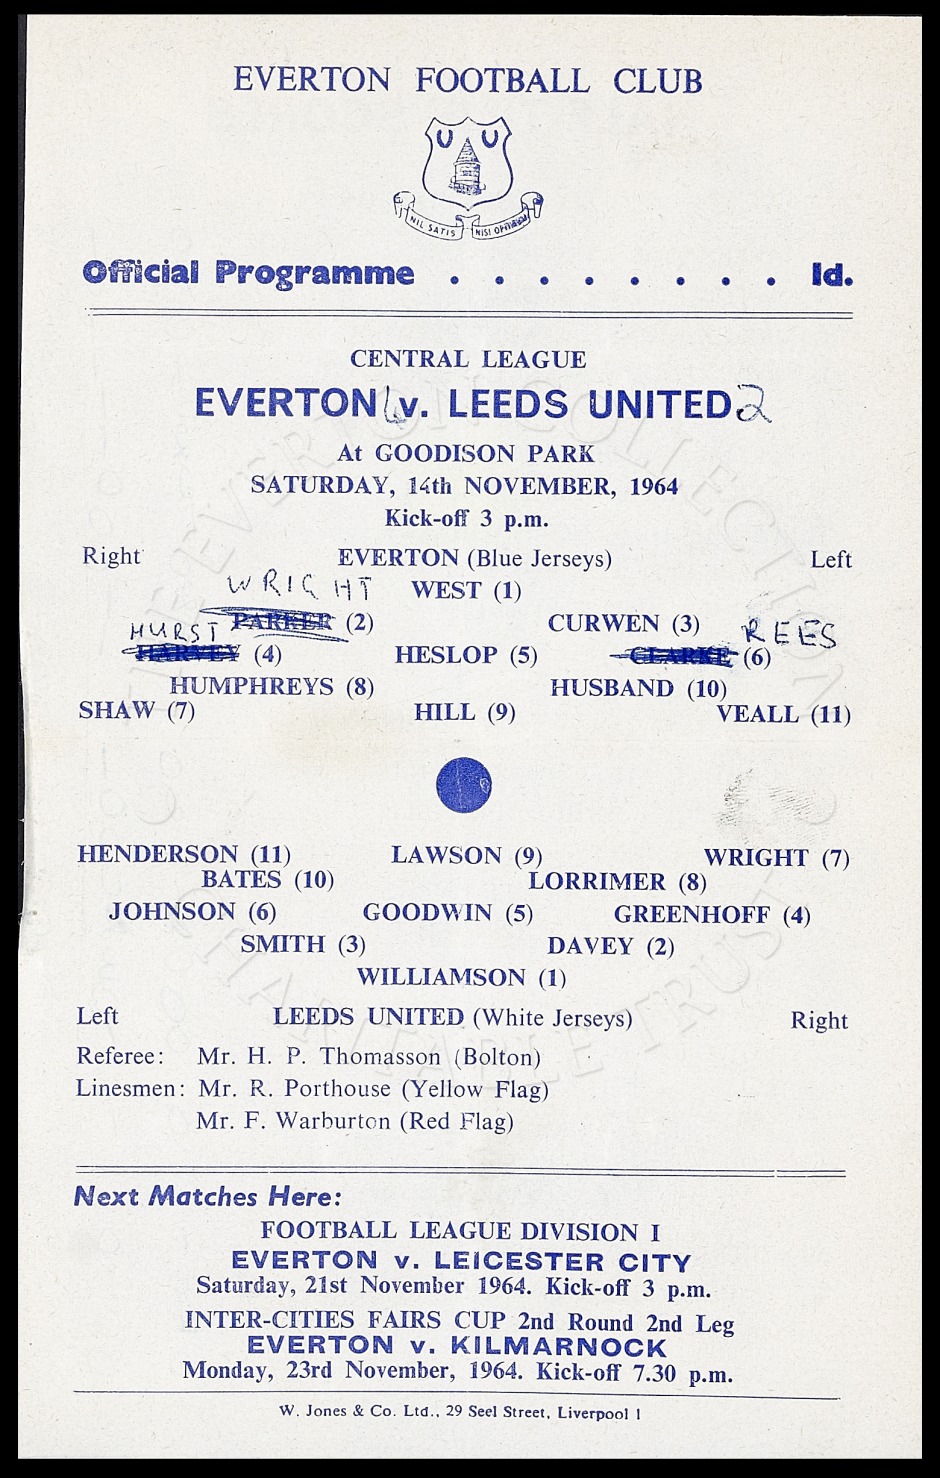 EVERTON FOOTBALL CLUB
NIL SATIS NISI OPTIMUM
Official Programme . . . . . . . . . 1d.
CENTRAL LEAGUE
EVERTON v. LEEDS UNITED 2
At GOODISON PARK
SATURDAY, 14th NOVEMBER, 1964
Kick-off 3 p.m.
Right EVERTON (Blue Jerseys) Left
WRIGHT WEST (1)
PARKER (2) CURWEN (3) REES
HURST
HARVEY (4) HESLOP (5) CLARKE (6)
HUMPHREYS (8) HUSBAND (10)
SHAW (7) HILL (9) VEALL (11)
HENDERSON (11) LAWSON (9) WRIGHT (7)
BATES (10) LORRIMER (8)
JOHNSON (6) GOODWIN (5) GREENHOFF (4)
SMITH (3) DAVEY (2)
WILLIAMSON (1)
Left LEEDS UNITED (White Jerseys) Right
Referee: Mr. H. P. Thomasson (Bolton)
Linesmen: Mr. R. Porthouse (Yellow Flag)
Mr. F. Warburton (Red Flag)
Next Matches Here:
FOOTBALL LEAGUE DIVISION I
EVERTON v. LEICESTER CITY
Saturday, 21st November 1964. Kick-off 3 p.m.
INTER-CITIES FAIRS CUP 2nd Round 2nd Leg
EVERTON v. KILMARNOCK
Monday, 23rd November, 1964. Kick-off 7.30 p.m.
W. Jones & Co. Ltd., 29 Seel Street, Liverpool 1
THE EVERTON COLLECTION
CHARITABLE TRUST